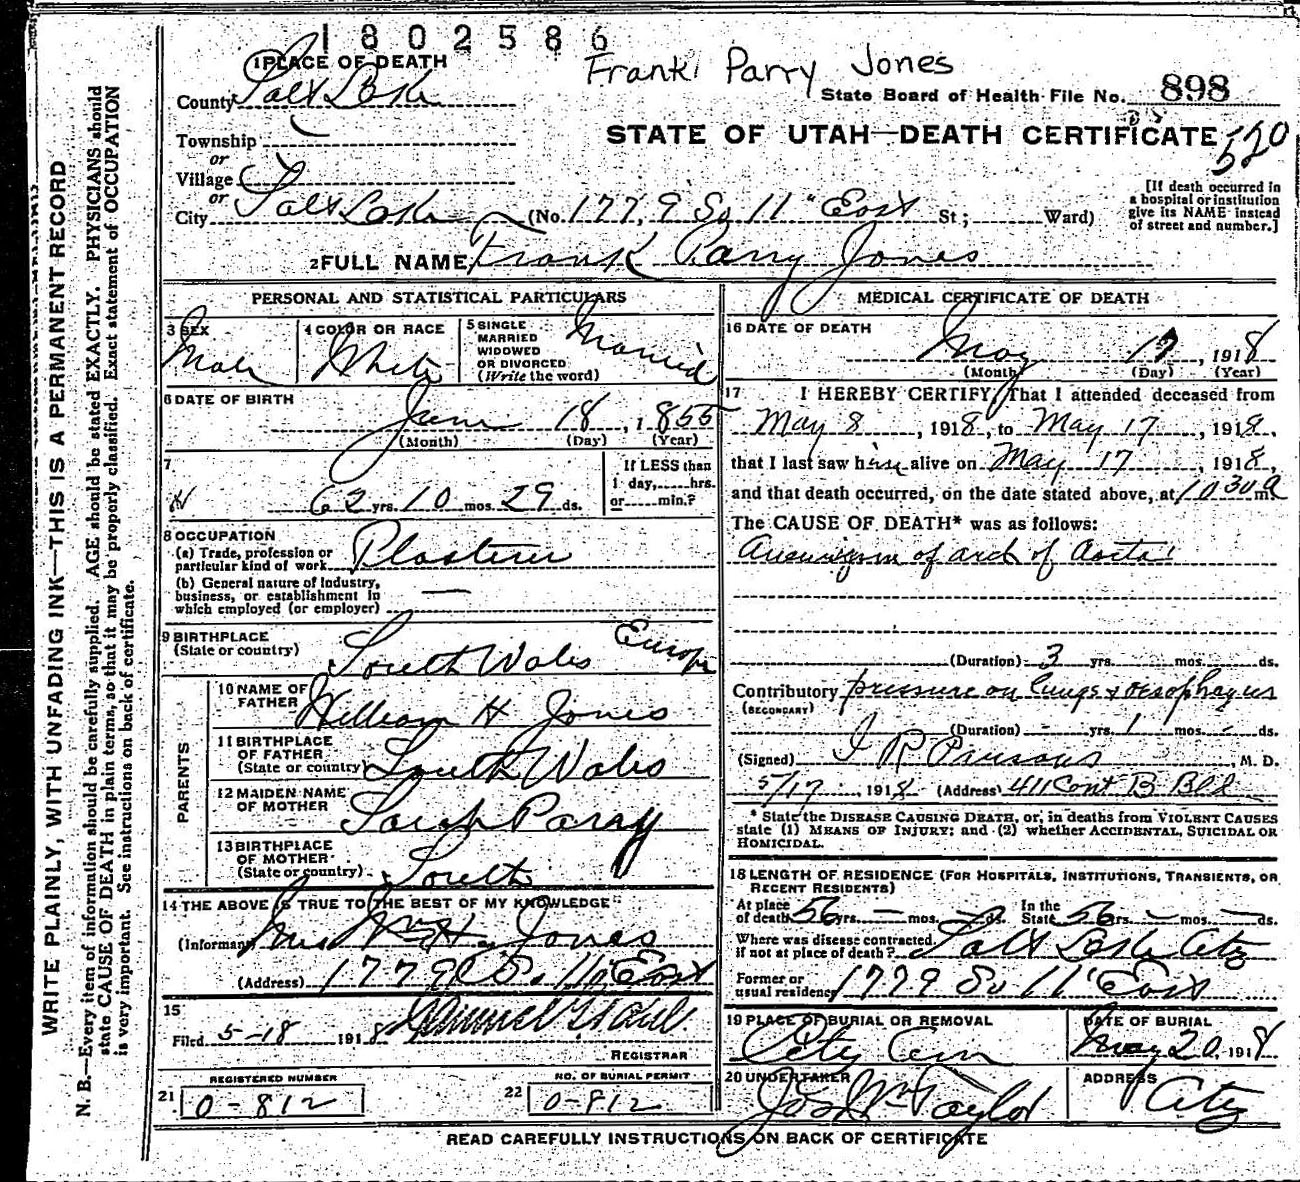 1802586
Frank Parry Jones
1 PLACE OF DEATH
County Salt Lake
State Board of Health File No. 898
Township
or
Village
or
STATE OF UTAH—DEATH CERTIFICATE
520
City Salt Lake (No. 1779 So 11" East St; Ward)
[If death occurred in
a hospital or institution
give its NAME instead
of street and number.]
2 FULL NAME Frank Parry Jones
PERSONAL AND STATISTICAL PARTICULARS
3 SEX
Male
4 COLOR OR RACE
White
5 SINGLE
MARRIED
WIDOWED
OR DIVORCED
(Write the word)
Married
6 DATE OF BIRTH
Jun 18, 1855
(Month) (Day) (Year)
7
62 yrs. 10 mos. 29 ds.
If LESS than
1 day, hrs.
or min.?
8 OCCUPATION
(a) Trade, profession or
particular kind of work Plasterer
(b) General nature of Industry,
business, or establishment in
which employed (or employer) —
9 BIRTHPLACE
(State or country) South Wales Europe
PARENTS
10 NAME OF
FATHER William H Jones
11 BIRTHPLACE
OF FATHER
(State or country) South Wales
12 MAIDEN NAME
OF MOTHER Sarah Parry
13 BIRTHPLACE
OF MOTHER
(State or country) South
14 THE ABOVE IS TRUE TO THE BEST OF MY KNOWLEDGE
(Informant) Mrs Wm H. Jones
(Address) 1779 So. 11" East
15
Filed 5-18 1918
REGISTRAR
REGISTERED NUMBER
21 0-812
NO. OF BURIAL PERMIT
22 0-812
MEDICAL CERTIFICATE OF DEATH
16 DATE OF DEATH
May 17, 1918
(Month) (Day) (Year)
17 I HEREBY CERTIFY, That I attended deceased from
May 8, 1918, to May 17, 1918,
that I last saw him alive on May 17, 1918,
and that death occurred, on the date stated above, at 10 30 a m.
The CAUSE OF DEATH* was as follows:
Aneurysm of arch of Aorta
(Duration) 3 yrs. mos. ds.
Contributory pressure on lungs & oesophagus
(SECONDARY)
(Duration) - yrs. 1 mos. - ds.
(Signed) J R Parsons M. D.
5/17, 1918 (Address) 411 Cont B Bld
* State the DISEASE CAUSING DEATH, or, in deaths from VIOLENT CAUSES
state (1) MEANS OF INJURY; and (2) whether ACCIDENTAL, SUICIDAL OR
HOMICIDAL.
18 LENGTH OF RESIDENCE (FOR HOSPITALS, INSTITUTIONS, TRANSIENTS, OR
RECENT RESIDENTS)
At place
of death 56 yrs. — mos. — ds. In the
State 56 yrs. — mos. — ds.
Where was disease contracted
if not at place of death? Salt Lake City
Former or
usual residence 1779 So 11" East
19 PLACE OF BURIAL OR REMOVAL
City Cem
DATE OF BURIAL
May 20, 1918
20 UNDERTAKER
Jos Wm Taylor
ADDRESS
City
READ CAREFULLY INSTRUCTIONS ON BACK OF CERTIFICATE
WRITE PLAINLY, WITH UNFADING INK—THIS IS A PERMANENT RECORD
N. B.—Every item of information should be carefully supplied. AGE should be stated EXACTLY. PHYSICIANS should
state CAUSE OF DEATH in plain terms, so that it may be properly classified. Exact statement of OCCUPATION
is very important. See instructions on back of certificate.